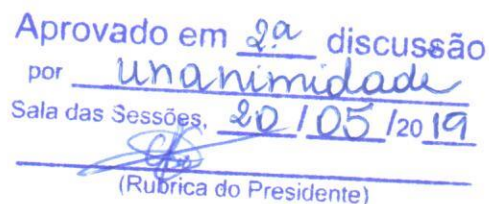 Aprovado em 2ª discussão
por unanimidade
Sala das Sessões, 20 / 05 /2019
(Rubrica do Presidente)